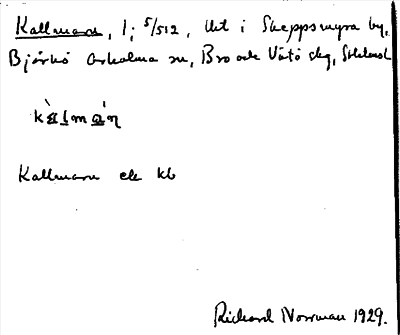 Kallmaran, 1; 5/512, Utl i Skeppsmyra by,
Björkö Arholma sn, Bro och Vätö skg, Sthlmsl
Kallmaran ek kb
Richard Norrman 1929.